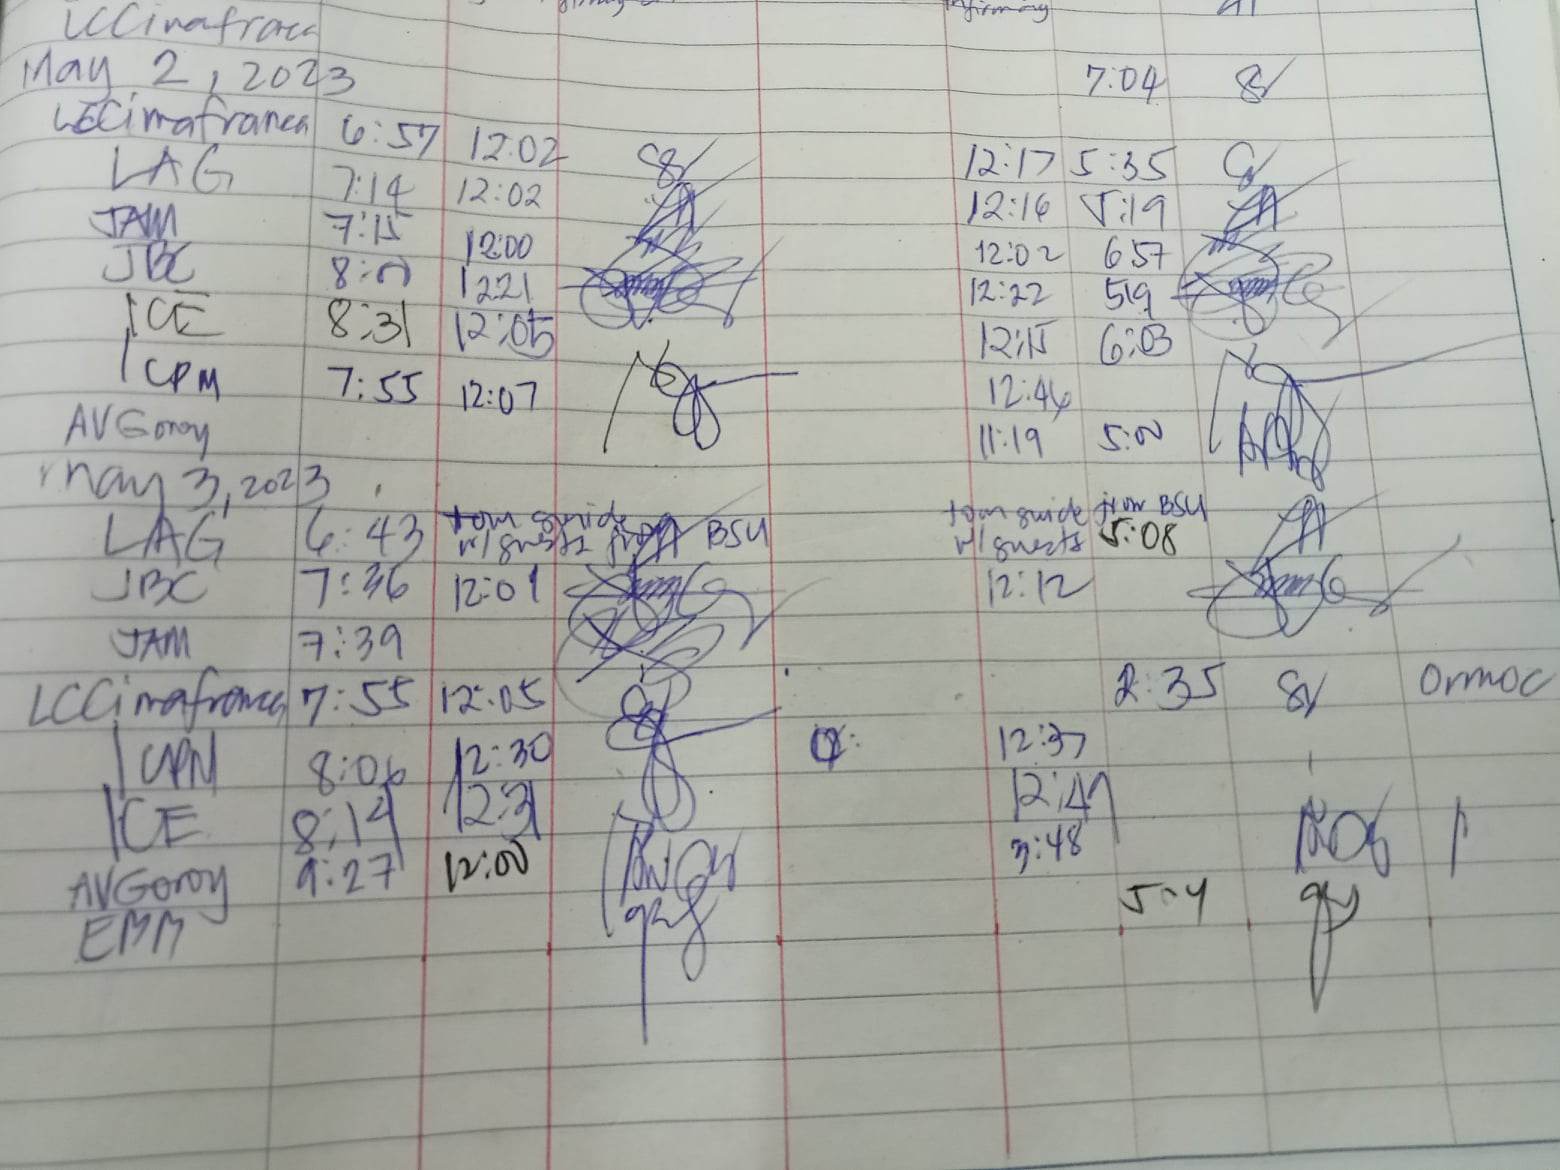 LCCimafranca
May 2, 2023 7:04
LCCimafranca 6:57 12:02 12:17 5:35
LAG 7:14 12:02 12:16 5:19
JAM 7:15 12:00 12:02 657
JBC 8:00 1221 12:22 519
ICE 8:31 12:05 12:15 6:03
ICPM 7:55 12:07 12:46
AVGoroy 11:19 5:00
May 3, 2023
LAG 6:43 tour guide w/guests from BSU tour guide from BSU w/guests 5:08
JBC 7:36 12:01 12:12
JAM 7:39
LCCimafranca 7:55 12:05 2:35 Ormoc
ICPM 8:06 12:30 12:37
ICE 8:14 12:31
AVGoroy 9:27 12:00 3:48
EMM